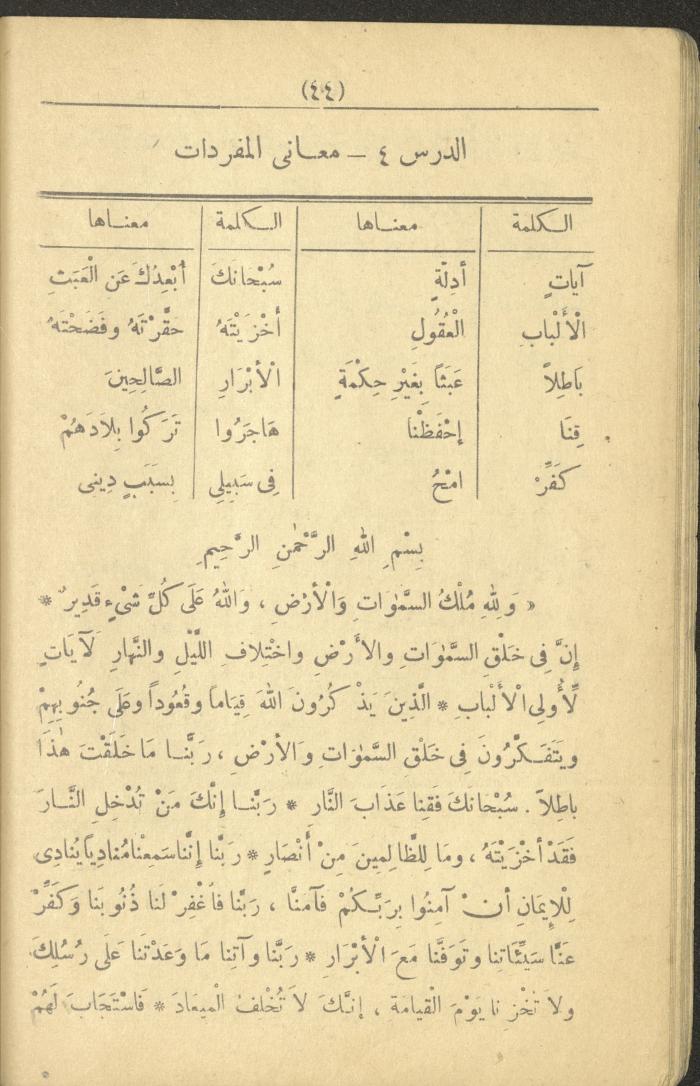 (٤٤)
الدرس ٤ – معانى المفردات
الكلمة معناها الكلمة معناها
آيَاتٍ أَدِلَّةٍ سُبْحَانَكَ أُبْعِدُكَ عَنِ الْعَبَثِ
الْأَلْبَابِ الْعُقُولِ أَخْزَيْتَهُ حَقَّرْتَهُ وفَضَحْتَهُ
بَاطِلاً عَبَثًا بِغَيْرِ حِكْمَةٍ الْأَبْرَارِ الصَّالِحِينَ
قِنَا إحْفَظْنَا هَاجَرُوا تَرَكُوا بِلَادَهُمْ
كَفِّرْ امْحُ فِى سَبِيلِى بِسَبَبِ دِينِى
بِسْمِ اللهِ الرَّحْمٰنِ الرَّحِيمِ
« وَلِلهِ مُلْكُ السَّمٰوَاتِ وَالْأَرْضِ ، وَاللهُ عَلَى كُلِّ شَىْءٍ قَدِيرٌ *
إنَّ فِى خَلْقِ السَّمٰوَاتِ والأَرْضِ واخْتِلافِ اللَّيْلِ والنَّهارِ لَآيَاتٍ
لِّأُولِى الْأَلْبابِ * الَّذِينَ يَذْكُرُونَ اللهَ قِيَاماً وقُعُوداً وعَلَى جُنُوبِهِمْ
ويَتَفَكَّرُونَ فِى خَلْقِ السَّمٰوَاتِ وَالأرْضِ ، رَبَّنَا مَا خَلَقْتَ هٰذَا
باطِلاً . سُبْحَانَكَ فَقِنا عَذَابَ النَّارِ * رَبَّنَا إنَّكَ مَنْ تُدْخِلِ النَّارَ
فَقَدْ أخْزَيْتَهُ ، ومَا لِلظَّالِمِينَ مِنْ أَنْصَارٍ * رَبَّنا إنَّنا سَمِعْنا مُنادِياً يُنادِى
لِلْإِيمَانِ أَنْ آمِنُوا بِرَبِّكُمْ فَآمَنَّا ، رَبَّنا فاغْفِرْ لَنا ذُنُوبَنا وَكَفِّرْ
عَنَّا سَيِّئَاتِنا وتَوَفَّنا مَعَ الْأَبْرَارِ * رَبَّنا وآتِنا مَا وَعَدْتَنا عَلَى رُسُلِكَ
ولَا تُخْزِنا يَوْمَ الْقيامَةِ ، إنَّكَ لَا تُخْلِفُ الْمِيعَادَ * فَاسْتَجَابَ لَهُمْ